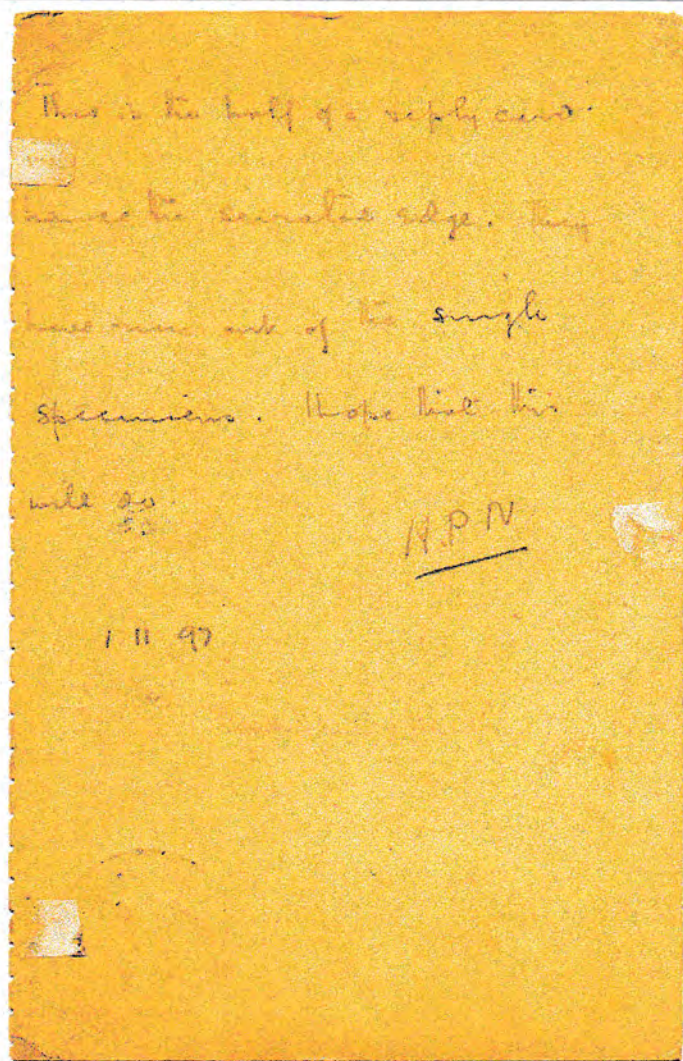 This is the half of a reply card
hence the serrated edge. They
have run out of the single
specimens. I hope that this
will do.
H.P.N
1 11 97